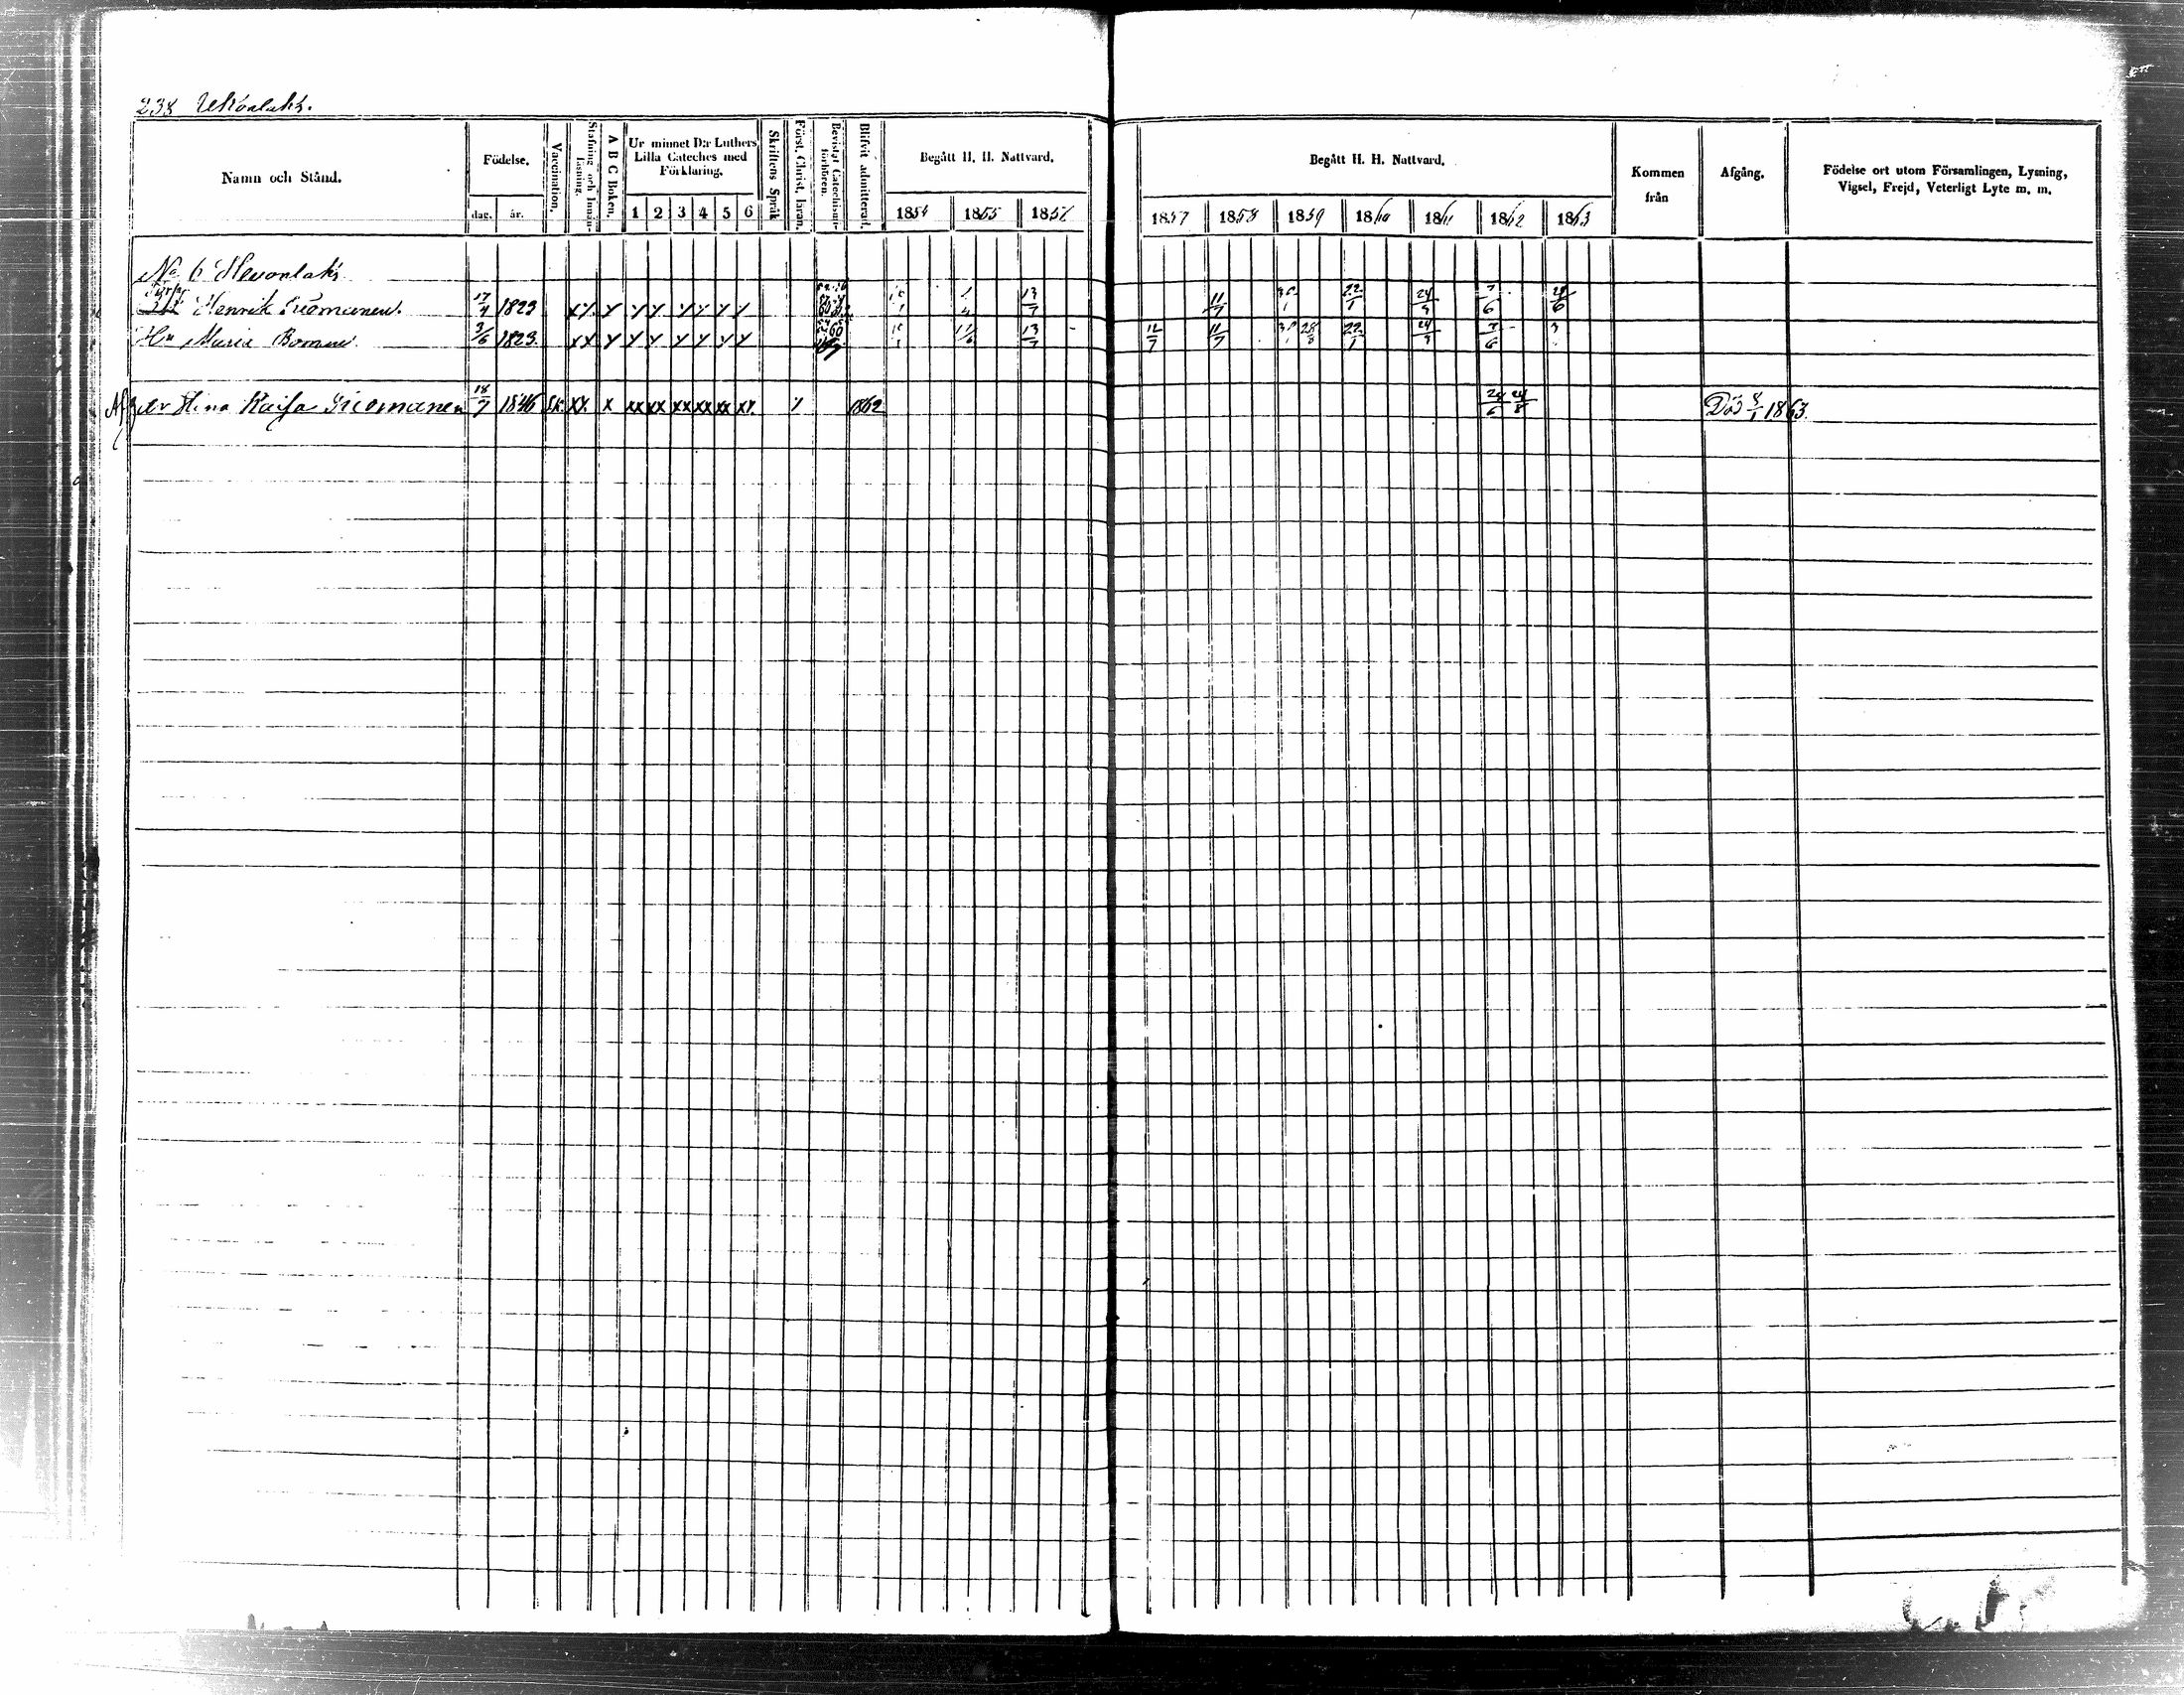 238 Ukonlaks.
Namn och Stånd.
Födelse.
dag. år.
Vaccination.
Stafning och Innanläsning.
A B C Boken.
Ur minnet D:r Luthers Lilla Cateches med Förklaring.
1 2 3 4 5 6
Skriftens Språk
Först. Christ. läran.
Bevistat Catechismi-förhören.
Blifvit admitterad.
Begått H. H. Nattvard.
1854 1855 1856
Begått H. H. Nattvard.
1857 1858 1859 1860 1861 1862 1863
Kommen från
Afgång.
Födelse ort utom Församlingen, Lysning, Vigsel, Frejd, Veterligt Lyte m. m.
No 6 Hevonlaks
Henrik Tuomanen. 17/4 1823 x x x x x x x x x 13/7 11/7 22/1 24/3 7/6 28/6
Hu Maria Bomun 3/6 1823 x x x x x x x x x 11/6 13/7 12/7 11/7 28/8 22/1 24/3 7/6
dr Stina Kaisa Tuomanen 18/7 1846 Sk. xx x xx xx xx xx xx xx x 1862 24/6 24/8 Död 8/1 1863.